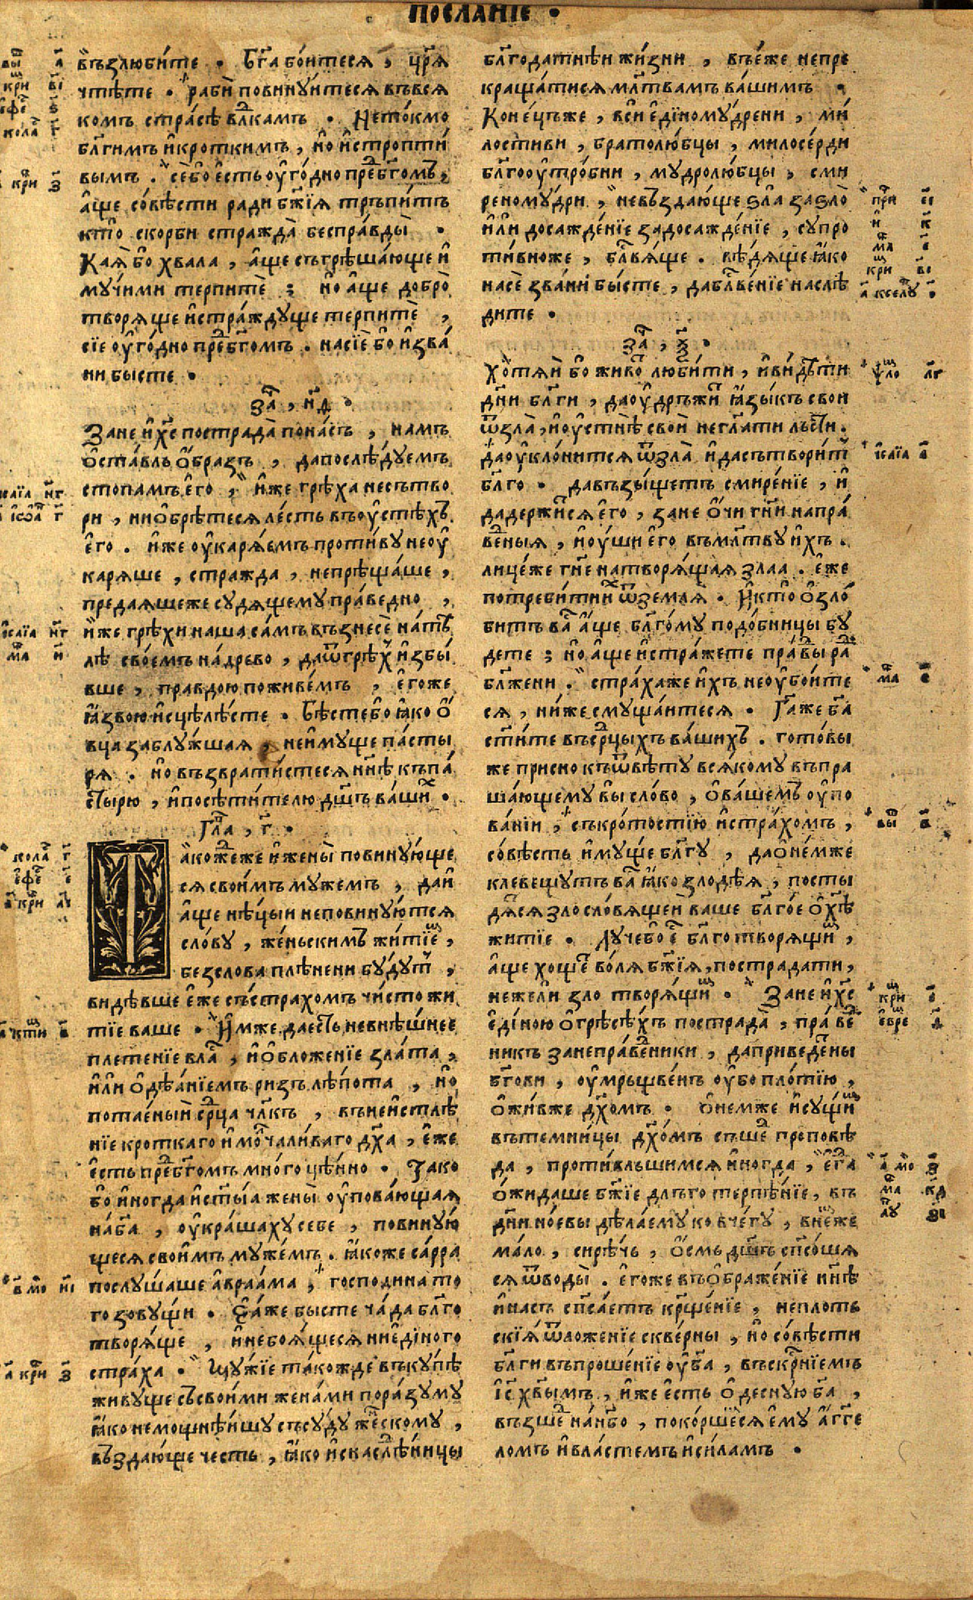 ПОСЛАНІЕ .
възлюбите . Бг҃а боитеся , цр҃я
чтѣте . раби повинуитеся въвся
комъ страсѣ влⷣкамъ . Нетокмо
бл҃гимъ и кроткимъ , но и стропти
вымъ . се бо есть оугодно преⷣбг҃омъ ,
аще совѣсти ради бж҃ія тръпитъ
кто скорби стражда бесправды .
Кая бо хвала , аще съгрѣшающе и
мучими терпите ; но аще добро
творяще и страждуще терпите ,
сіе оугодно преⷣбг҃омъ . насіе бо изва
ни бысте .
заⷱ , н҃д .
Зане и хс҃ пострада понасъ , намъ
оставль образъ , дапослѣдуемъ
стопамъ его , иже грѣха несътво
ри , ниобрѣтеся лесть въоустѣхъ
его . иже оукаряемъ противу неоу
каряше , стражда , непрѣщаше ,
предаяшеже судящему праведно ,
иже грѣхи наша самъ възнесе натѣ
лѣ своемъ надрево , даѿгрѣхъ избы
вше , правдою поживемъ , егоже
язвою исцѣлѣсте . Бѣсте бо яко о
вца заблужшая , неимуще пасты
ря . но възвратистеся нн҃ѣ къпа
стырю , ипосѣтителю дш҃ъ вашиⷯ .
Глаⷡ , г҃ .
Такожⷣеже и жены повинующе
ся своимъ мужемъ , даи
аще нѣцыи неповинуются
слову , женьскимъ житіеⷨ ,
безслова плѣнени будуⷮ ,
видѣвше еже състрахомъ чисто жи
тіе ваше . Имже даесть невнѣшнее
плетеніе влаⷭ , иобложеніе злата ,
или одѣаніемъ ризъ лѣпота , но
потаеныи срⷣца чл҃къ , внеистлѣ
ніе кроткаго и молчаливаго дх҃а , еже
есть преⷣбг҃омъ много цѣнно . Тако
бо иногда и ст҃ыа жены оуповающая
наба҃ , оукрашаху себе , повиную
щеся своимъ мужемъ . якоже сарра
послушаше авраама , господина то
го зовущи . Еяже бысте чада бл҃го
творяще , и небоящеся ниединого
страха . Мужіе такожде въкупѣ
живуще съсвоими женами поразуму
яко немощнѣишу съсуду жеⷩскому ,
въздающе честь , яко и снаслѣдницы
бл҃годатнѣи жизни , въеже непре
кращатися мл҃твамъ вашимъ .
Конецъже , вси единомудрени , ми
лостиви , братолюбцы , милосерди
бл҃гооутробни , мудролюбцы , сми
реномудри , невъздающе ѕла заѕло
или досажденіе задосажденіе , супро
тивноже , бл҃вяще . вѣдяще яко
насе звани бысте , дабл҃веніе наслѣ
дите .
заⷱ , н҃е .
Хотяи бо живоⷮ любити , и видѣти
дн҃и бл҃ги , даоудръжиⷮ языкъ свои
ѿзла , и оустнѣ свои неглаⷢ҇ати льсти .
даоуклонится ѿзла идасътвориⷮ
бл҃го . давъзыщетъ смиреніе , и
дадержиⷮся его , зане очи гн҃и напра
веⷣныя , и оуши его въмл҃тву ихъ .
лицеже гн҃е натворящая злаа . еже
потребитиⷯ ѿземля . И кто озло
битъ ваⷭ аще бл҃гому подобницы бу
дете ; но аще и стражете праⷡды раⷣ
блж҃ени . страхаже ихъ неоубоите
ся , ниже смущаитеся . Гаⷭ҇аже ба҃
ст҃ите въсрⷣцыхъ вашихъ . готовы
же присно къѿвѣту всякому въпра
шающему вы слово , овашемъ оупо
ваніи , съкротостію и страхомъ ,
совѣсть имуще бл҃гу , даонемже
клевещутъ ваⷭ яко злодѣя , посты
дяⷮся злословящеи ваше бл҃гое охс҃ѣ
житіе . Лучебо еⷭ бл҃го творящиⷨ ,
аще хощеⷮ воля бж҃ія , пострадати ,
нежели зло творящиⷨ . Зане и хс҃
единою огрѣсѣхъ пострада , праⷡе
никъ занеправеⷣники , даприведеⷮны
бг҃ови , оумръщвенъ оубо плотію ,
оживже дх҃омъ . онемже и сущиⷨ
въ темницы дх҃омъ съшеⷣ проповѣ
да , противльшимся иногда , егⷣа
ожидаше бж҃іе дльго терпѣніе , въ
дн҃и ноевы дѣлаему ковчегу , внеⷨже
мало , сирѣчь , осмь дш҃ъ сп҃соша
ся ѿводы . егоже въображеніе нн҃ѣ
инасъ сп҃саетъ крщ҃еніе , неплоть
скія ѿложеніе скверны , но совѣсти
бл҃ги въпрошеніе оуба҃ , въскрⷭніемъ
іс҃ хв҃ымъ , иже есть одесную ба҃ ,
възшеⷣ нанб҃о , покоршеся ему агг҃е
ломъ и властемъ и силамъ .